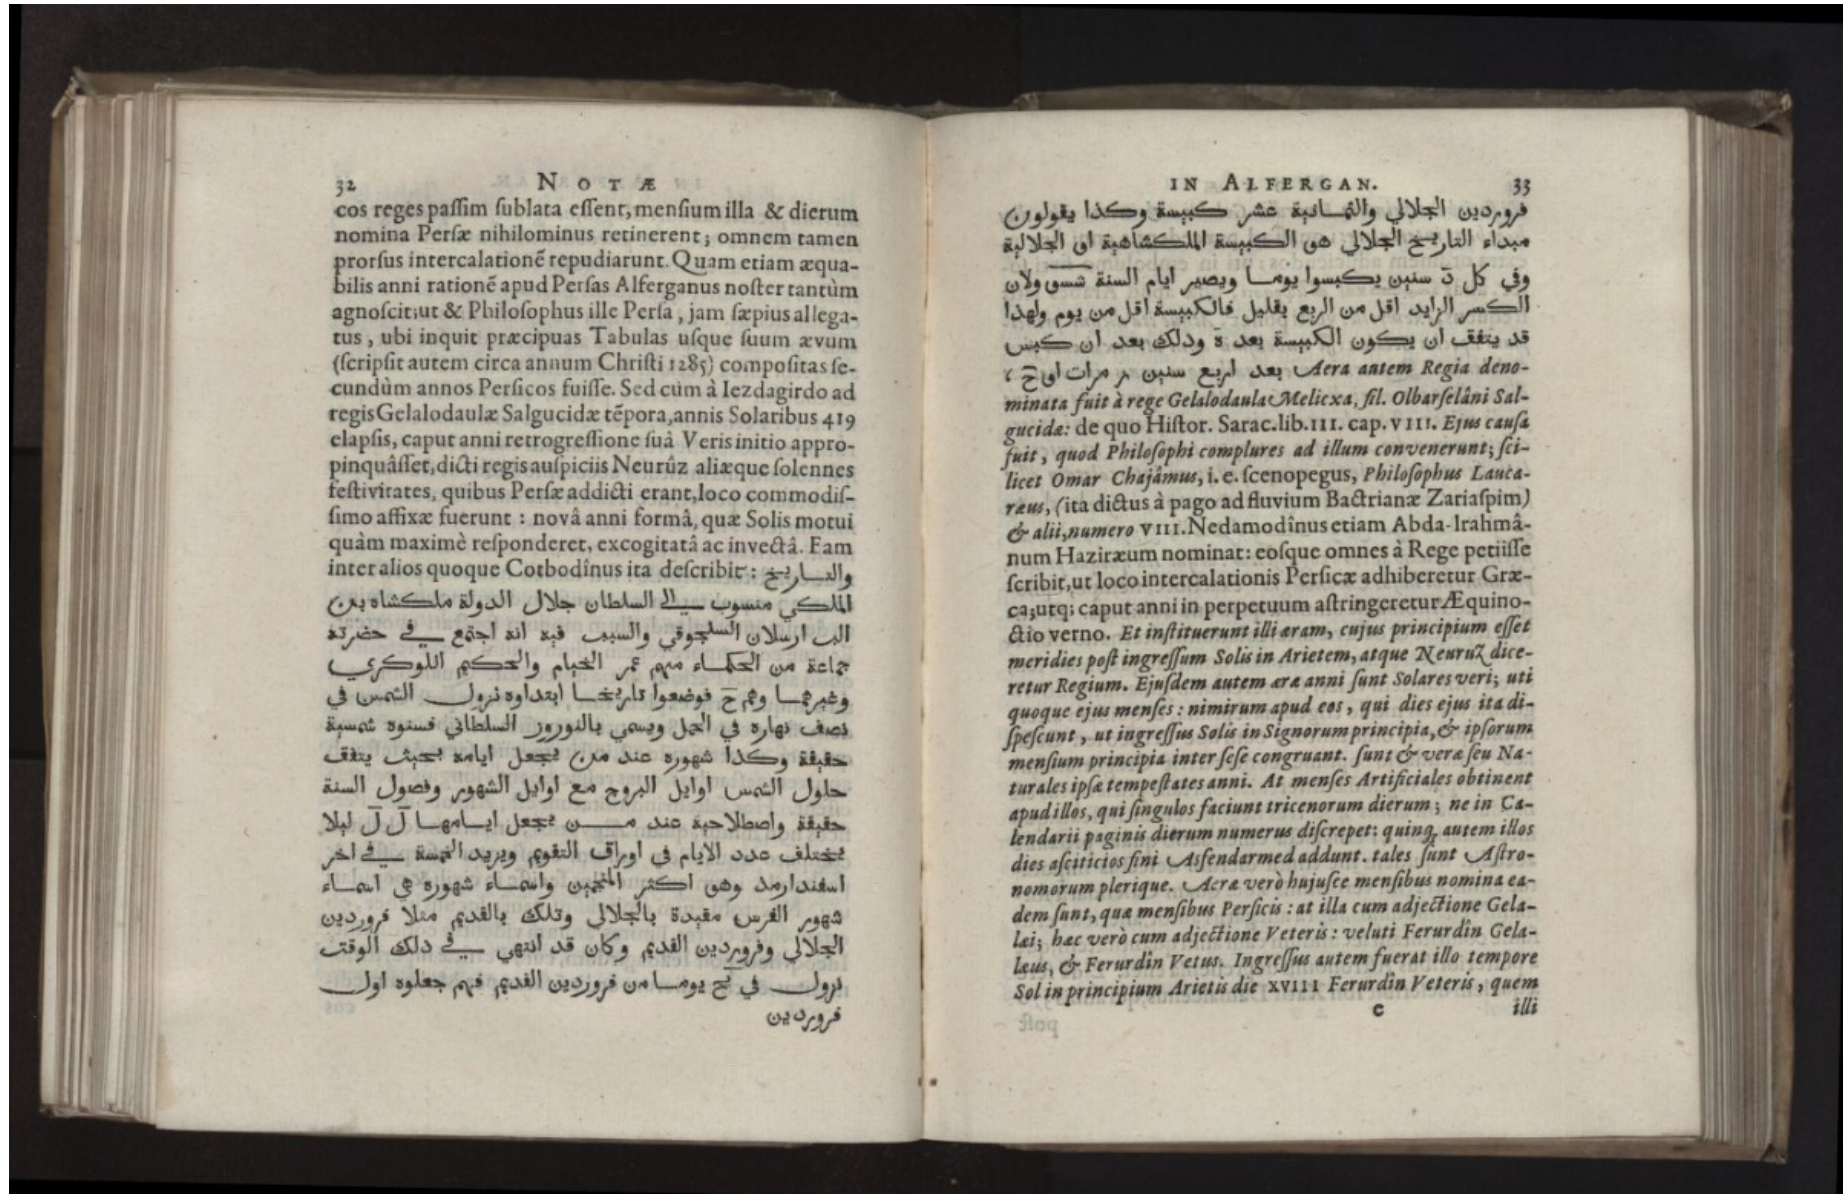 32 NOTÆ
cos reges passim sublata essent, mensium illa & dierum
nomina Persæ nihilominus retinerent; omnem tamen
prorsus intercalationẽ repudiarunt. Quam etiam æqua-
bilis anni rationẽ apud Persas Alferganus noster tantùm
agnoscit; ut & Philosophus ille Persa, jam sæpius allega-
tus, ubi inquit præcipuas Tabulas usque suum ævum
(scripsit autem circa annum Christi 1285) compositas se-
cundùm annos Persicos fuisse. Sed cùm à Iezdagirdo ad
regis Gelalodaulæ Salgucidæ tẽpora, annis Solaribus 419
elapsis, caput anni retrogressione suâ Veris initio appro-
pinquâsset, dicti regis auspiciis Neurûz aliæque solennes
festivitates, quibus Persæ addicti erant, loco commodis-
simo affixæ fuerunt: novâ anni formâ, quæ Solis motui
quàm maximè responderet, excogitatâ ac invectâ. Eam
inter alios quoque Cotbodînus ita describit: والتاريخ
الملكي منسوب الي السلطان جلال الدولة ملكشاه بن
الب ارسلان السلجوقي والسبب فيه انه اجتمع في حضرته
جماعة من الحكماء منهم عمر الخيام والحكيم اللوكري
وغيرهما وهم ح فوضعوا تاريخا ابتداوه نزول الشمس في
نصف نهاره في الحمل ويسمي بالنوروز السلطاني فسنوه شمسية
حقيقة وكذا شهوره عند من يجعل ايامه بحيث يتفق
حلول الشمس اوايل البروج مع اوايل الشهور وفصول السنة
حقيقة واصطلاحية عند من يجعل ايامها ل ل ليلا
يختلف عدد الايام في اوراق التقويم ويريد الخمسة في اخر
اسفندارمد وهو اكثر المنجمين واسماء شهوره هي اسماء
شهور الفرس مقيدة بالجلالي وتلك بالقديم مثلا فروردين
الجلالي وفروردين القديم وكان قد انتهي في دلك الوقت
نزول في يح يوما من فروردين القديم فهم جعلوه اول
فروردين
IN ALFERGAN. 33
فروردين الجلالي والثمانية عشر كبيسة وكذا يقولون
مبداء التاريخ الجلالي هو الكبيسة الملكشاهية او الجلالية
وفي كل د سنين يكبسوا يوما ويصير ايام السنة شسو ولان
الكسر الزايد اقل من الربع بقليل فالكبيسة اقل من يوم ولهذا
قد يتفق ان يكون الكبيسة بعد ه ودلك بعد ان كبس
بعد اربع سنين ز مرات او ح ، Aera autem Regia deno-
minata fuit à rege Gelalodaula Melicxa, fil. Olbarselâni Sal-
gucidæ: de quo Histor. Sarac. lib. III. cap. VIII. Ejus causa
fuit, quod Philosophi complures ad illum convenerunt; sci-
licet Omar Chajâmus, i. e. scenopegus, Philosophus Lauca-
ræus, (ita dictus à pago ad fluvium Bactrianæ Zariaspim)
& alii, numero VIII. Nedamodînus etiam Abda-lrahmâ-
num Haziræum nominat: eosque omnes à Rege petiisse
scribit, ut loco intercalationis Persicæ adhiberetur Græ-
ca; utq; caput anni in perpetuum astringeretur Æquino-
ctio verno. Et instituerunt illi æram, cujus principium esset
meridies post ingressum Solis in Arietem, atque Neuruz dice-
retur Regium. Ejusdem autem æræ anni sunt Solares veri; uti
quoque ejus menses: nimirum apud eos, qui dies ejus ita di-
spescunt, ut ingressus Solis in Signorum principia, & ipsorum
mensium principia inter sese congruant. sunt & veræ seu Na-
turales ipsæ tempestates anni. At menses Artificiales obtinent
apud illos, qui singulos faciunt tricenorum dierum; ne in Ca-
lendarii paginis dierum numerus discrepet: quinq; autem illos
dies asciticios fini Asfendarmed addunt. tales sunt Astro-
nomorum plerique. Aeræ verò hujusce mensibus nomina ea-
dem sunt, quæ mensibus Persicis: at illa cum adjectione Gela-
læi; hæc verò cum adjectione Veteris: veluti Ferurdîn Gela-
læus, & Ferurdîn Vetus. Ingressus autem fuerat illo tempore
Sol in principium Arietis die XVIII Ferurdîn Veteris, quem
C illi